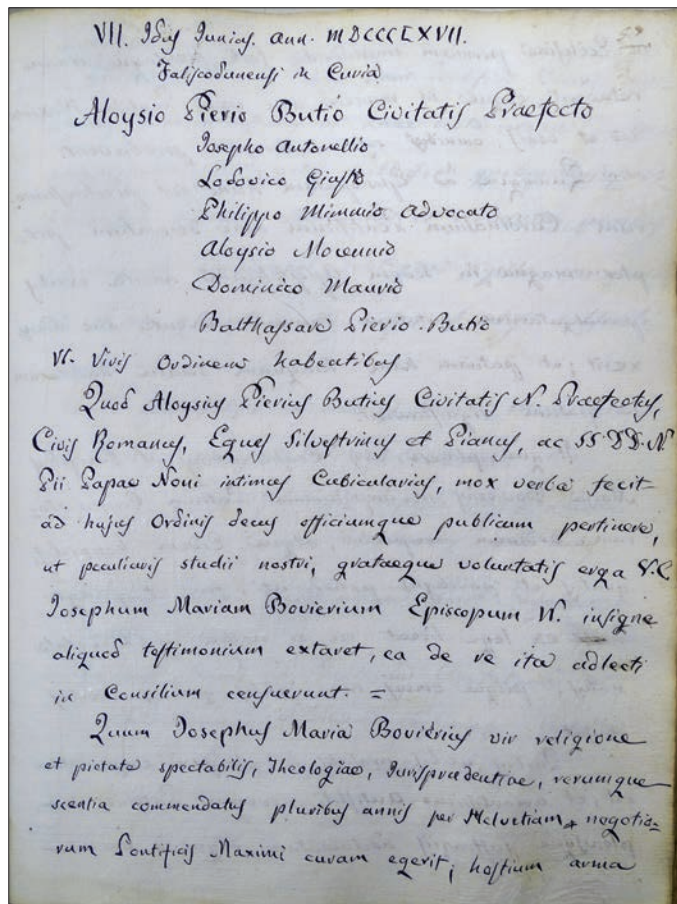 VII. Idus Junias. ann. MDCCCLXVII.
Faliscodunensi in Curia
Aloysio Pierio Butio Civitatis Praefecto
Josepho Antonellio
Lodovico
Philippo Mimmio Advocato
Aloysio
Dominico Maurio
Balthassare Pierio-Butio
VI. Viris Ordinem habentibus
Quod Aloysius Pierius Butius Civitatis N. Praefectus,
Civis Romanus, Eques Silvestrinus et Pianus, ac SS. DD. N.
Pii Papae Noni intimus Cubicularius, mox verba fecit
ad hujus Ordinis decus officiumque publicum pertinere,
ut peculiaris studii nostri, grataeque voluntatis erga V.C.
Josephum Mariam Bovierium Episcopum N. insigne
aliquod testimonium extaret, ea de re ita adlecti
in Consilium censuerunt. =
Quum Josephus Maria Bovierius vir religione
et pietate spectabilis, Theologiae, Jurisprudentiae, rerumque
scentia commendatus pluribus annis per Helvetiam negotio=
rum Pontificis Maximi curam egerit; hostium arma